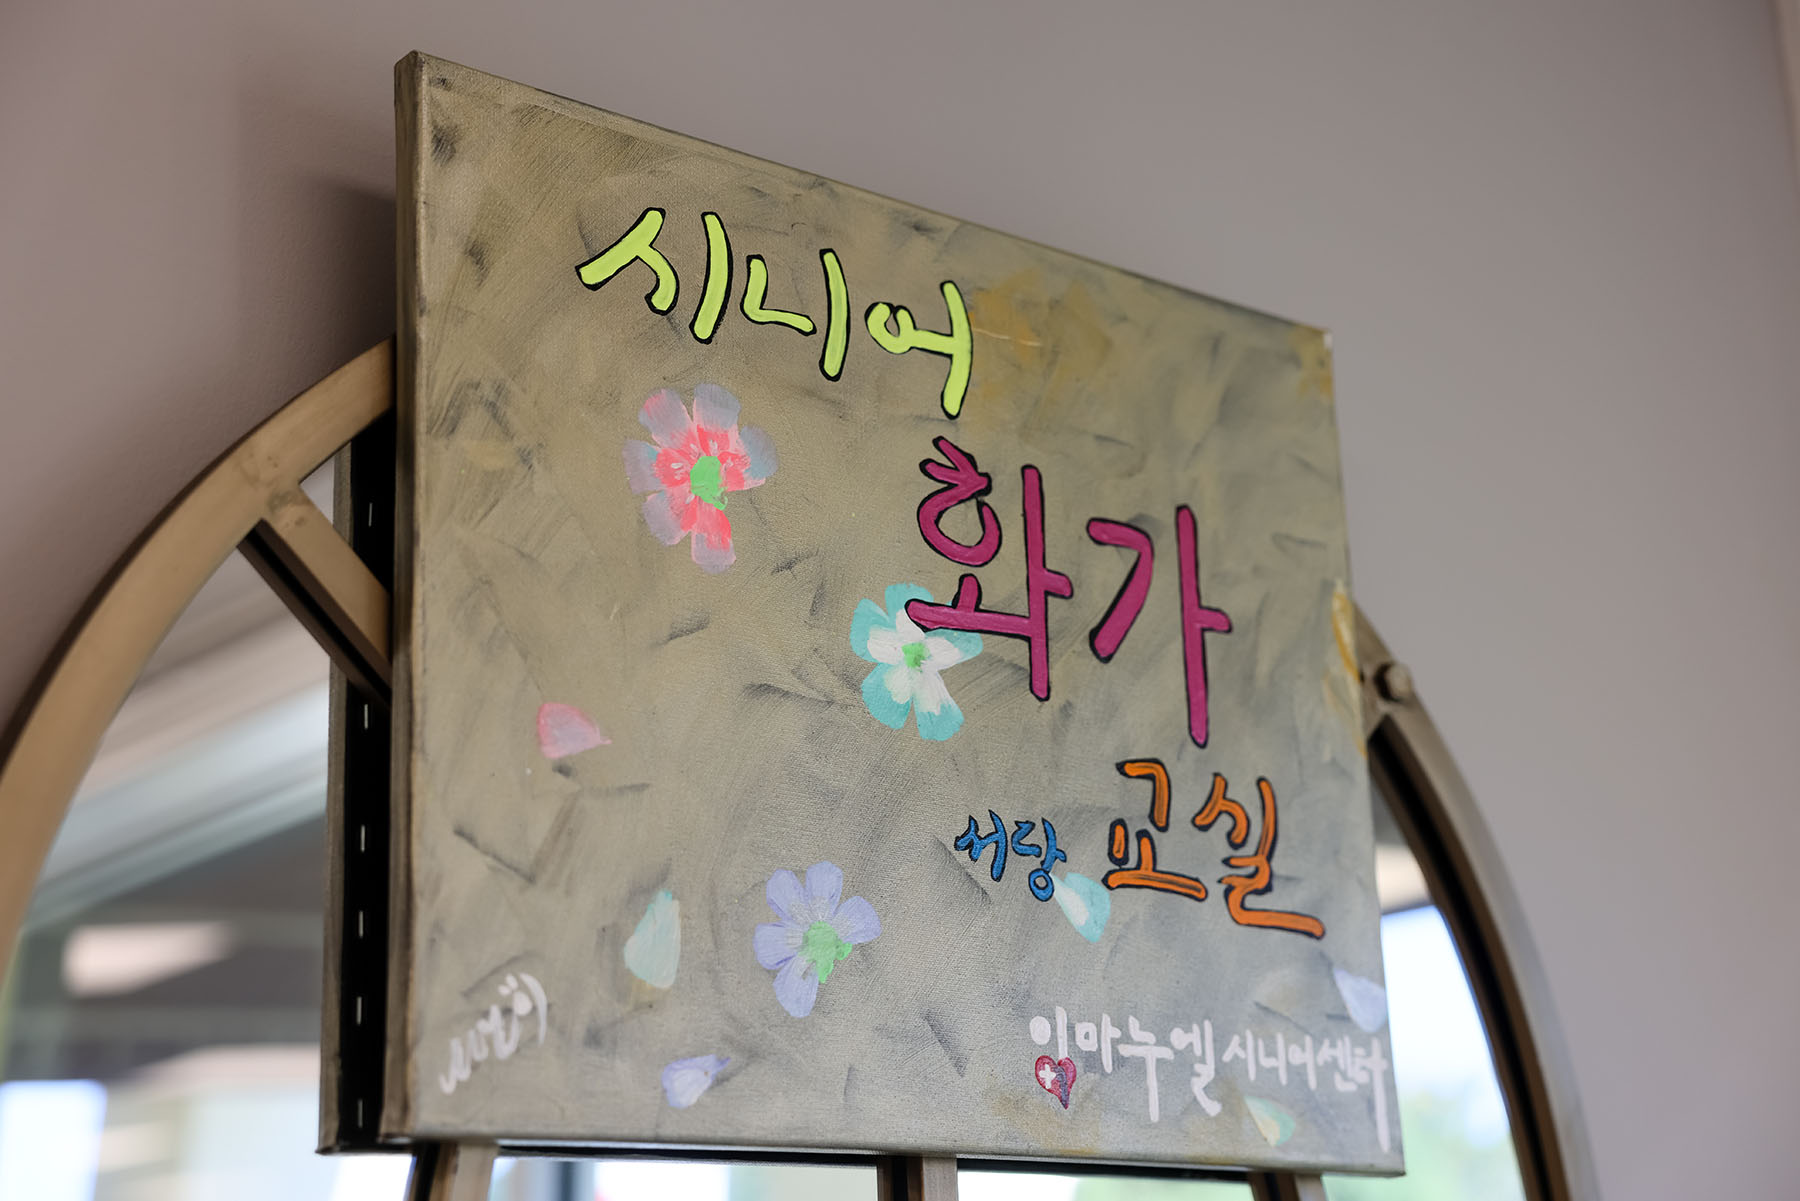 시니어
화가
서당 교실
임마누엘 시니어센터